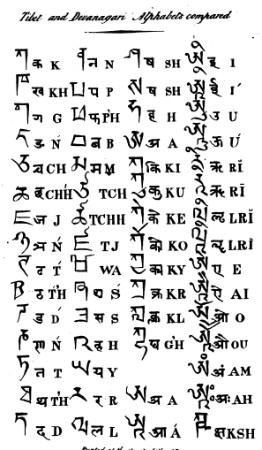 Tibet and Devanagari Alphabets compared
ཀ क K ན न N ཥ ष SH ཨི इ I
ཁ ख KH པ प P ष SH ཨཱི ई Í
ག ग G ཕ फ PH ཧ ह H ཨུ उ U
ང ङ Ń བ ब B ཨ अ A ཨཱུ ऊ Ú
ཅ च CH མ म M ཀི कि KI ऋ RĬ
ཆ छ CHH ཙ TCH ཀུ कु KU ॠ RĪ
ཇ ज J ཚ TCHH ཀེ के KE ऌ LRĬ
ཉ ञ Ń ཛ TJ ཀོ को KO ॡ LRĪ
ཊ ट T ཝ WA ཀྱ क्य KY ཨེ ए E
ठ TH ཤ श Ś ཀྲ क्र KR ཨཻ ऐ AI
ཌ ड D ས स S ཀླ क्ल KL ཨོ ओ O
ཎ ण Ń ཧ ह H घ GH ཨཽ औ OU
ཏ त T ཡ य Y ཨཾ अं AM
ཐ थ TH ར र R ཨ अ A ཨཿ अः AH
ད द D ལ ल L ཨཱ आ Á ཀྵ क्ष KSH